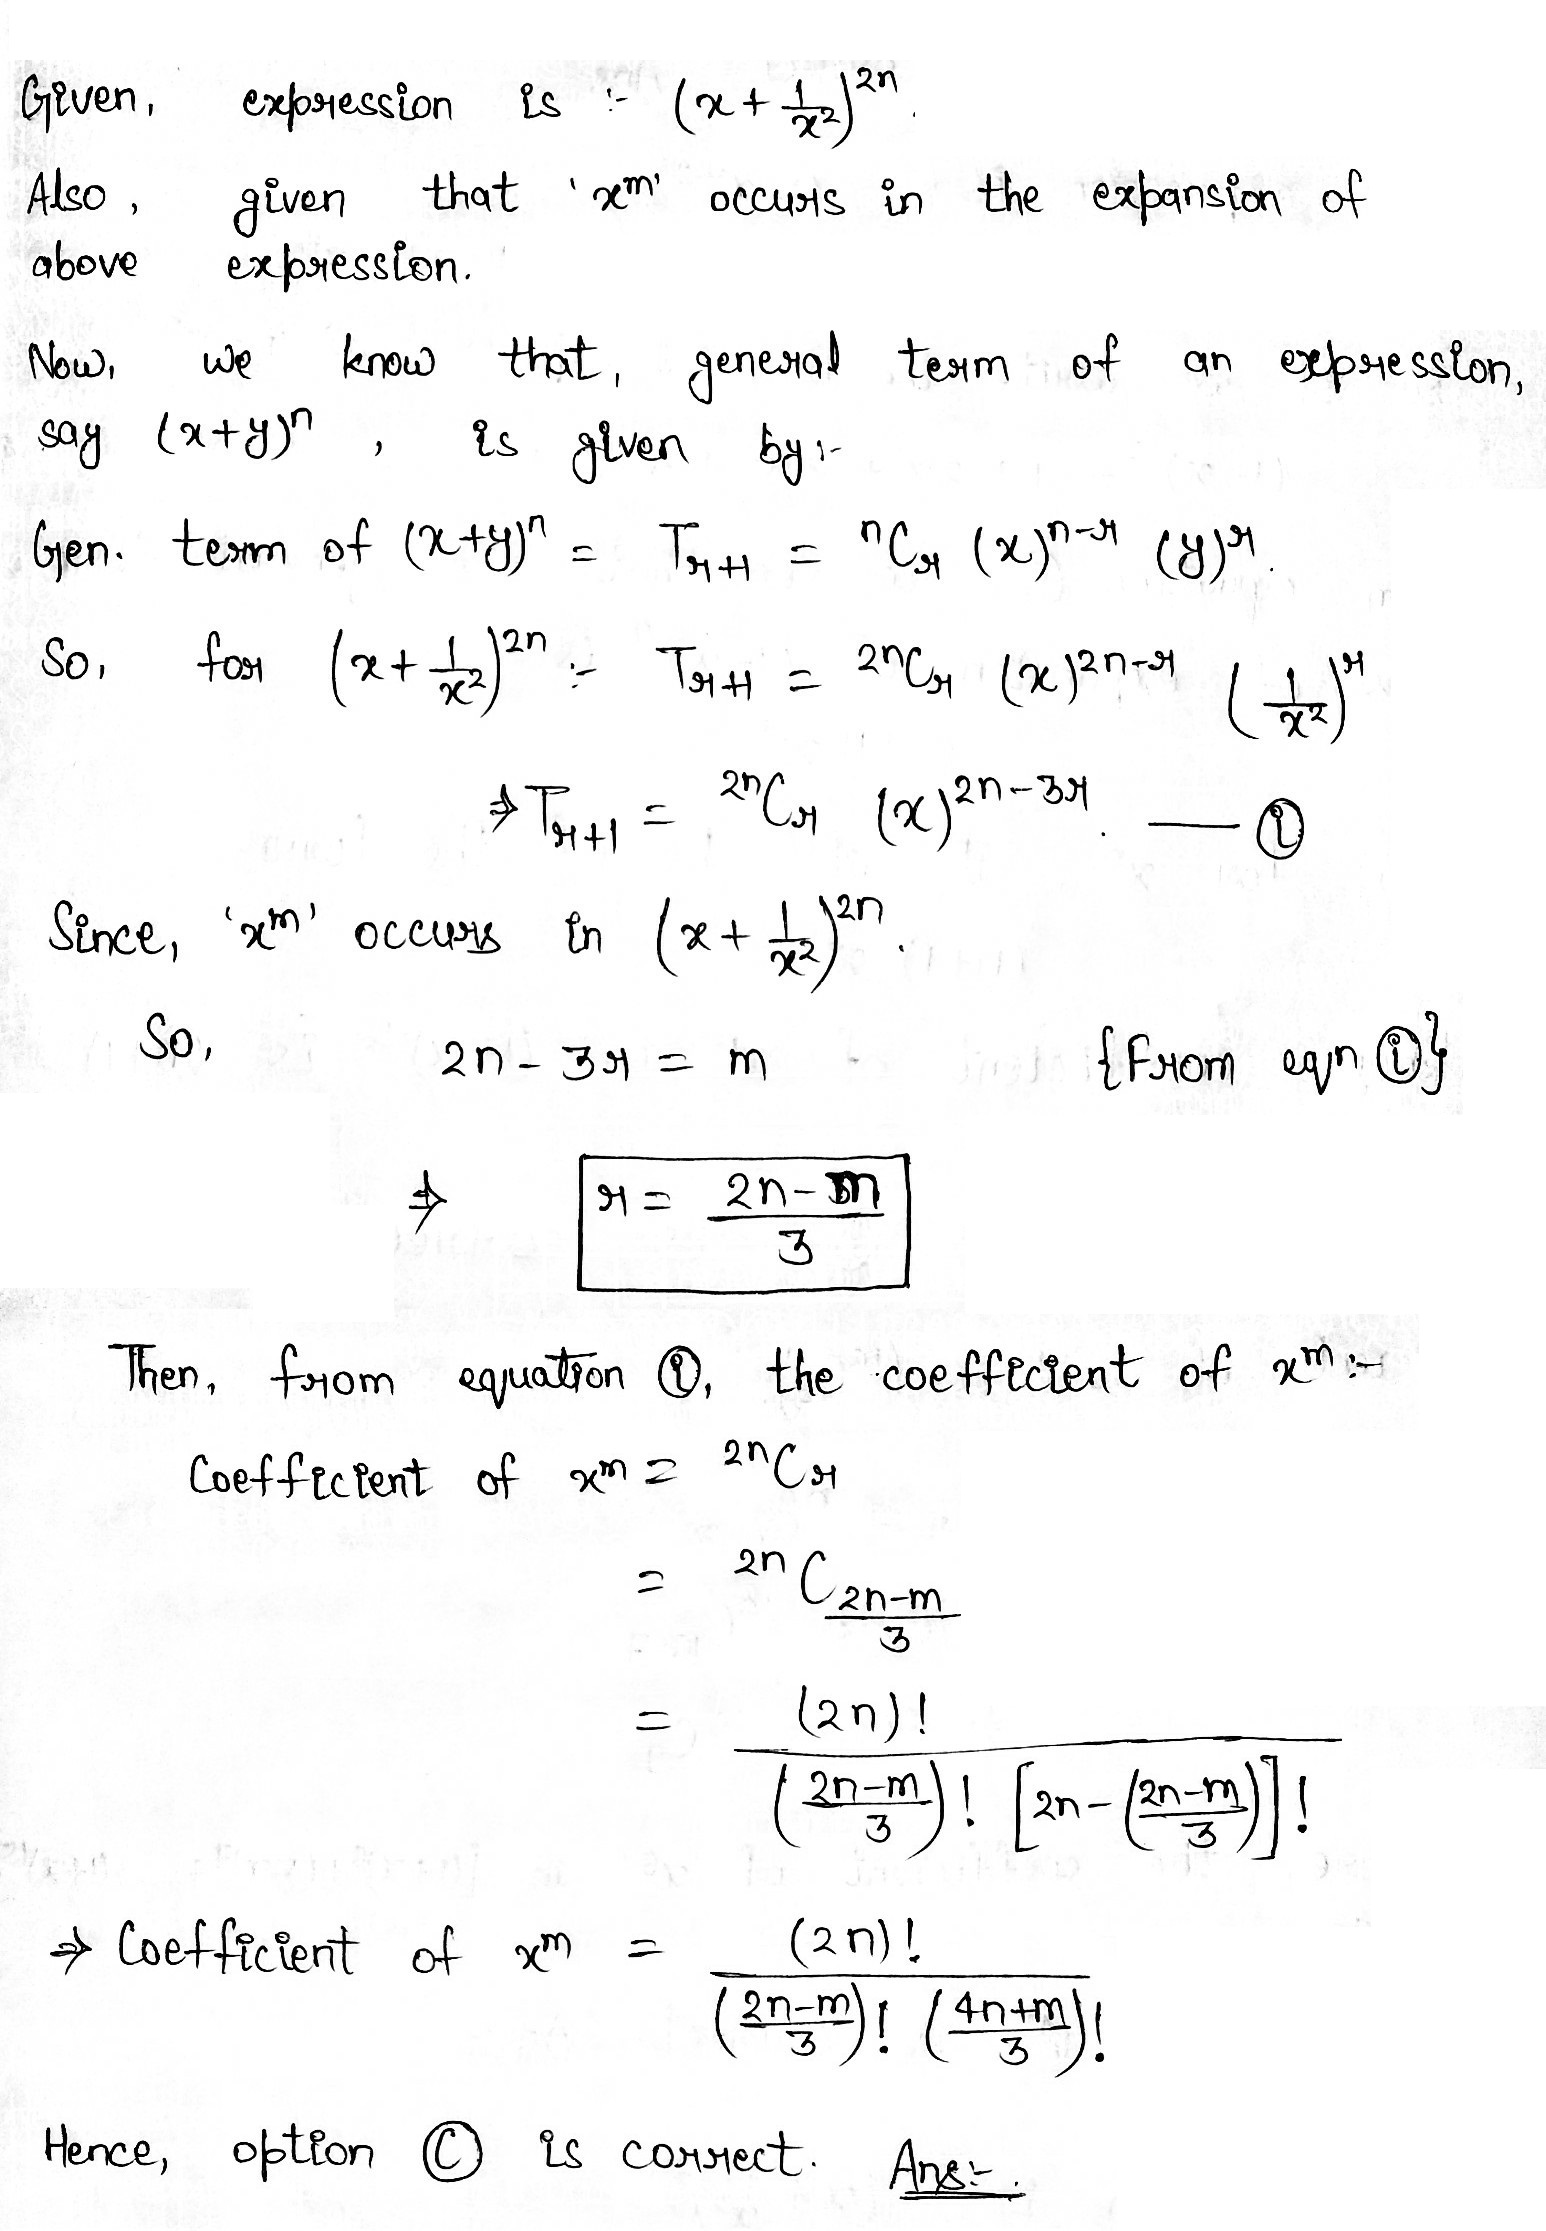 Given, expression is :- (x + 1/x²)²ⁿ.
Also, given that 'xᵐ' occurs in the expansion of
above expression.
Now, we know that, general term of an expression,
say (x+y)ⁿ, is given by :-
Gen. term of (x+y)ⁿ = Tᵣ₊₁ = ⁿCᵣ (x)ⁿ⁻ʳ (y)ʳ.
So, for (x + 1/x²)²ⁿ :- Tᵣ₊₁ = ²ⁿCᵣ (x)²ⁿ⁻ʳ (1/x²)ʳ
⇒ Tᵣ₊₁ = ²ⁿCᵣ (x)²ⁿ⁻³ʳ. — ①
Since, 'xᵐ' occurs in (x + 1/x²)²ⁿ.
So, 2n - 3r = m {From eqn ①}
⇒ r = (2n-m)/3
Then, from equation ①, the coefficient of xᵐ :-
Coefficient of xᵐ = ²ⁿCᵣ
= ²ⁿC_((2n-m)/3)
= (2n)! / ((2n-m)/3)! [2n-((2n-m)/3)]!
⇒ Coefficient of xᵐ = (2n)! / ((2n-m)/3)! ((4n+m)/3)!
Hence, option Ⓒ is correct. Ans:-.